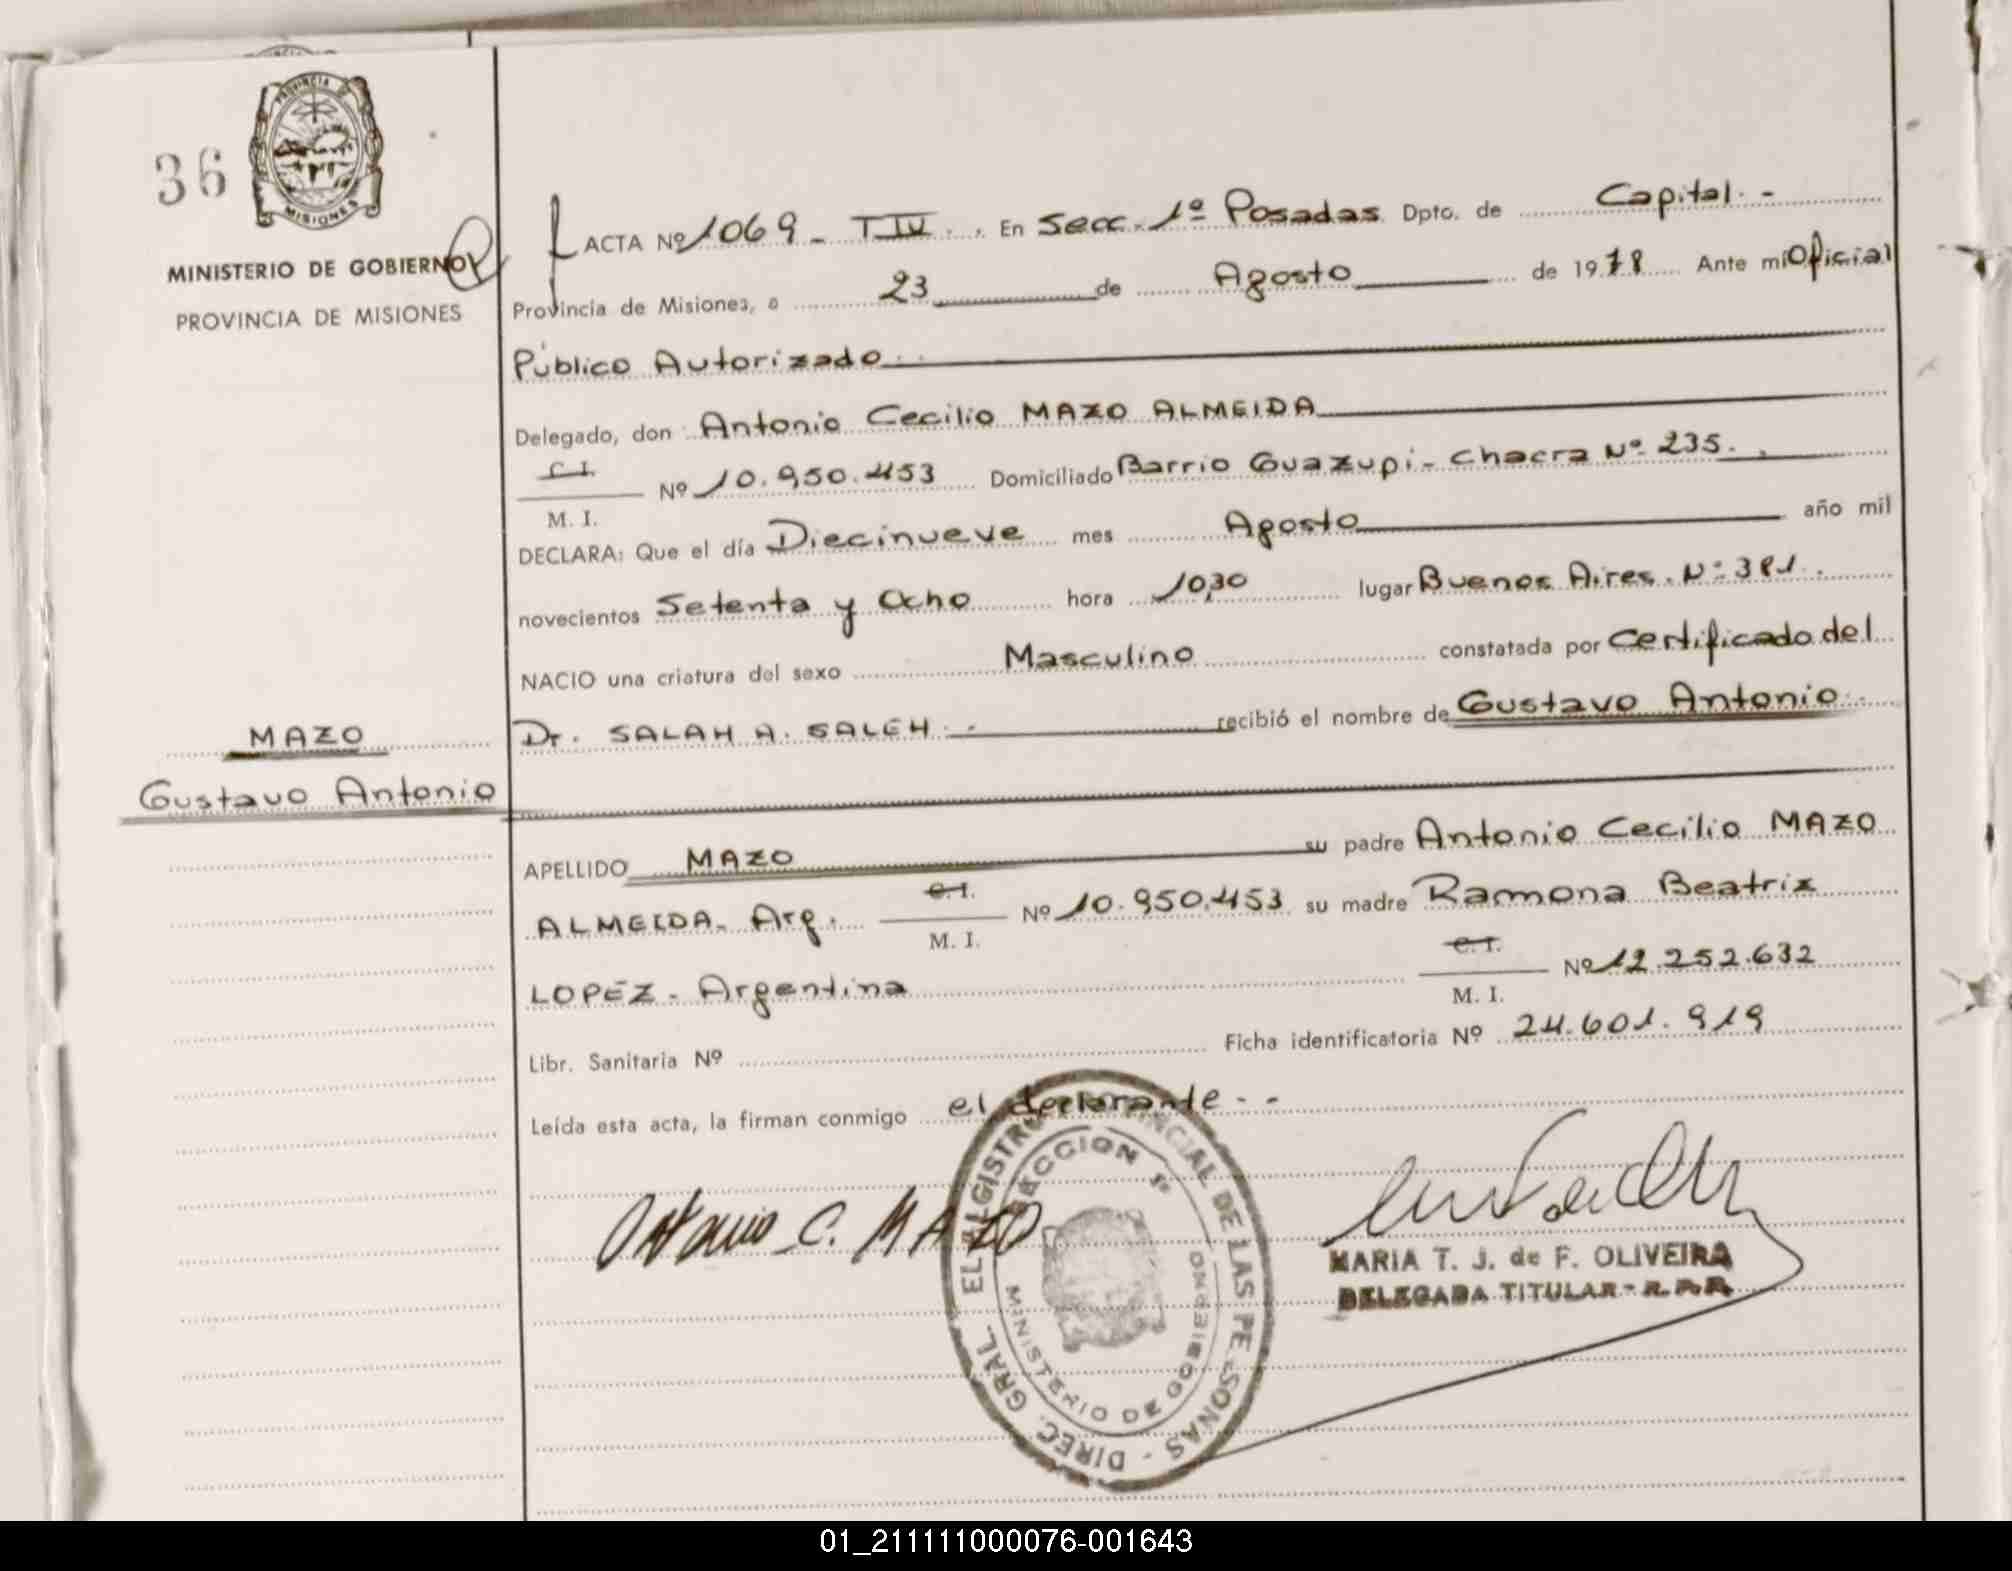 36
PROVINCIA DE
MISIONES
MINISTERIO DE GOBIERNO
PROVINCIA DE MISIONES
ACTA Nº 1069 - T IV. . En Secc. 1º Posadas Dpto. de Capital. -
Provincia de Misiones, a 23 de Agosto de 1978 Ante mi Oficial
Público Autorizado.
Delegado, don Antonio Cecilio MAZO ALMEIDA
C. I.
Nº 10.950.453 Domiciliado Barrio Guazupi - Chacra Nº 235. .
M. I.
DECLARA: Que el día Diecinueve mes Agosto año mil
novecientos Setenta y Ocho hora 10,30 lugar Buenos Aires. Nº 381.
NACIO una criatura del sexo Masculino constatada por Certificado del
MAZO
Dr. SALAH A. SALEH. - recibió el nombre de Gustavo Antonio.
Gustavo Antonio
APELLIDO MAZO su padre Antonio Cecilio MAZO
ALMEIDA - Arg. C. I. Nº 10.950.453 su madre Ramona Beatriz
M. I.
LOPEZ - Argentina C. I. Nº 12.252.632
M. I.
Libr. Sanitaria Nº Ficha identificatoria Nº 24.601.919
Leída esta acta, la firman conmigo el declarante - -
Antonio C. MAZO
DIREC. GRAL. DE LAS PERSONAS
SECCION 1º
MINISTERIO DE GOBIERNO
MARIA T. J. de F. OLIVEIRA
DELEGADA TITULAR - R.P.P.
01_211111000076-001643